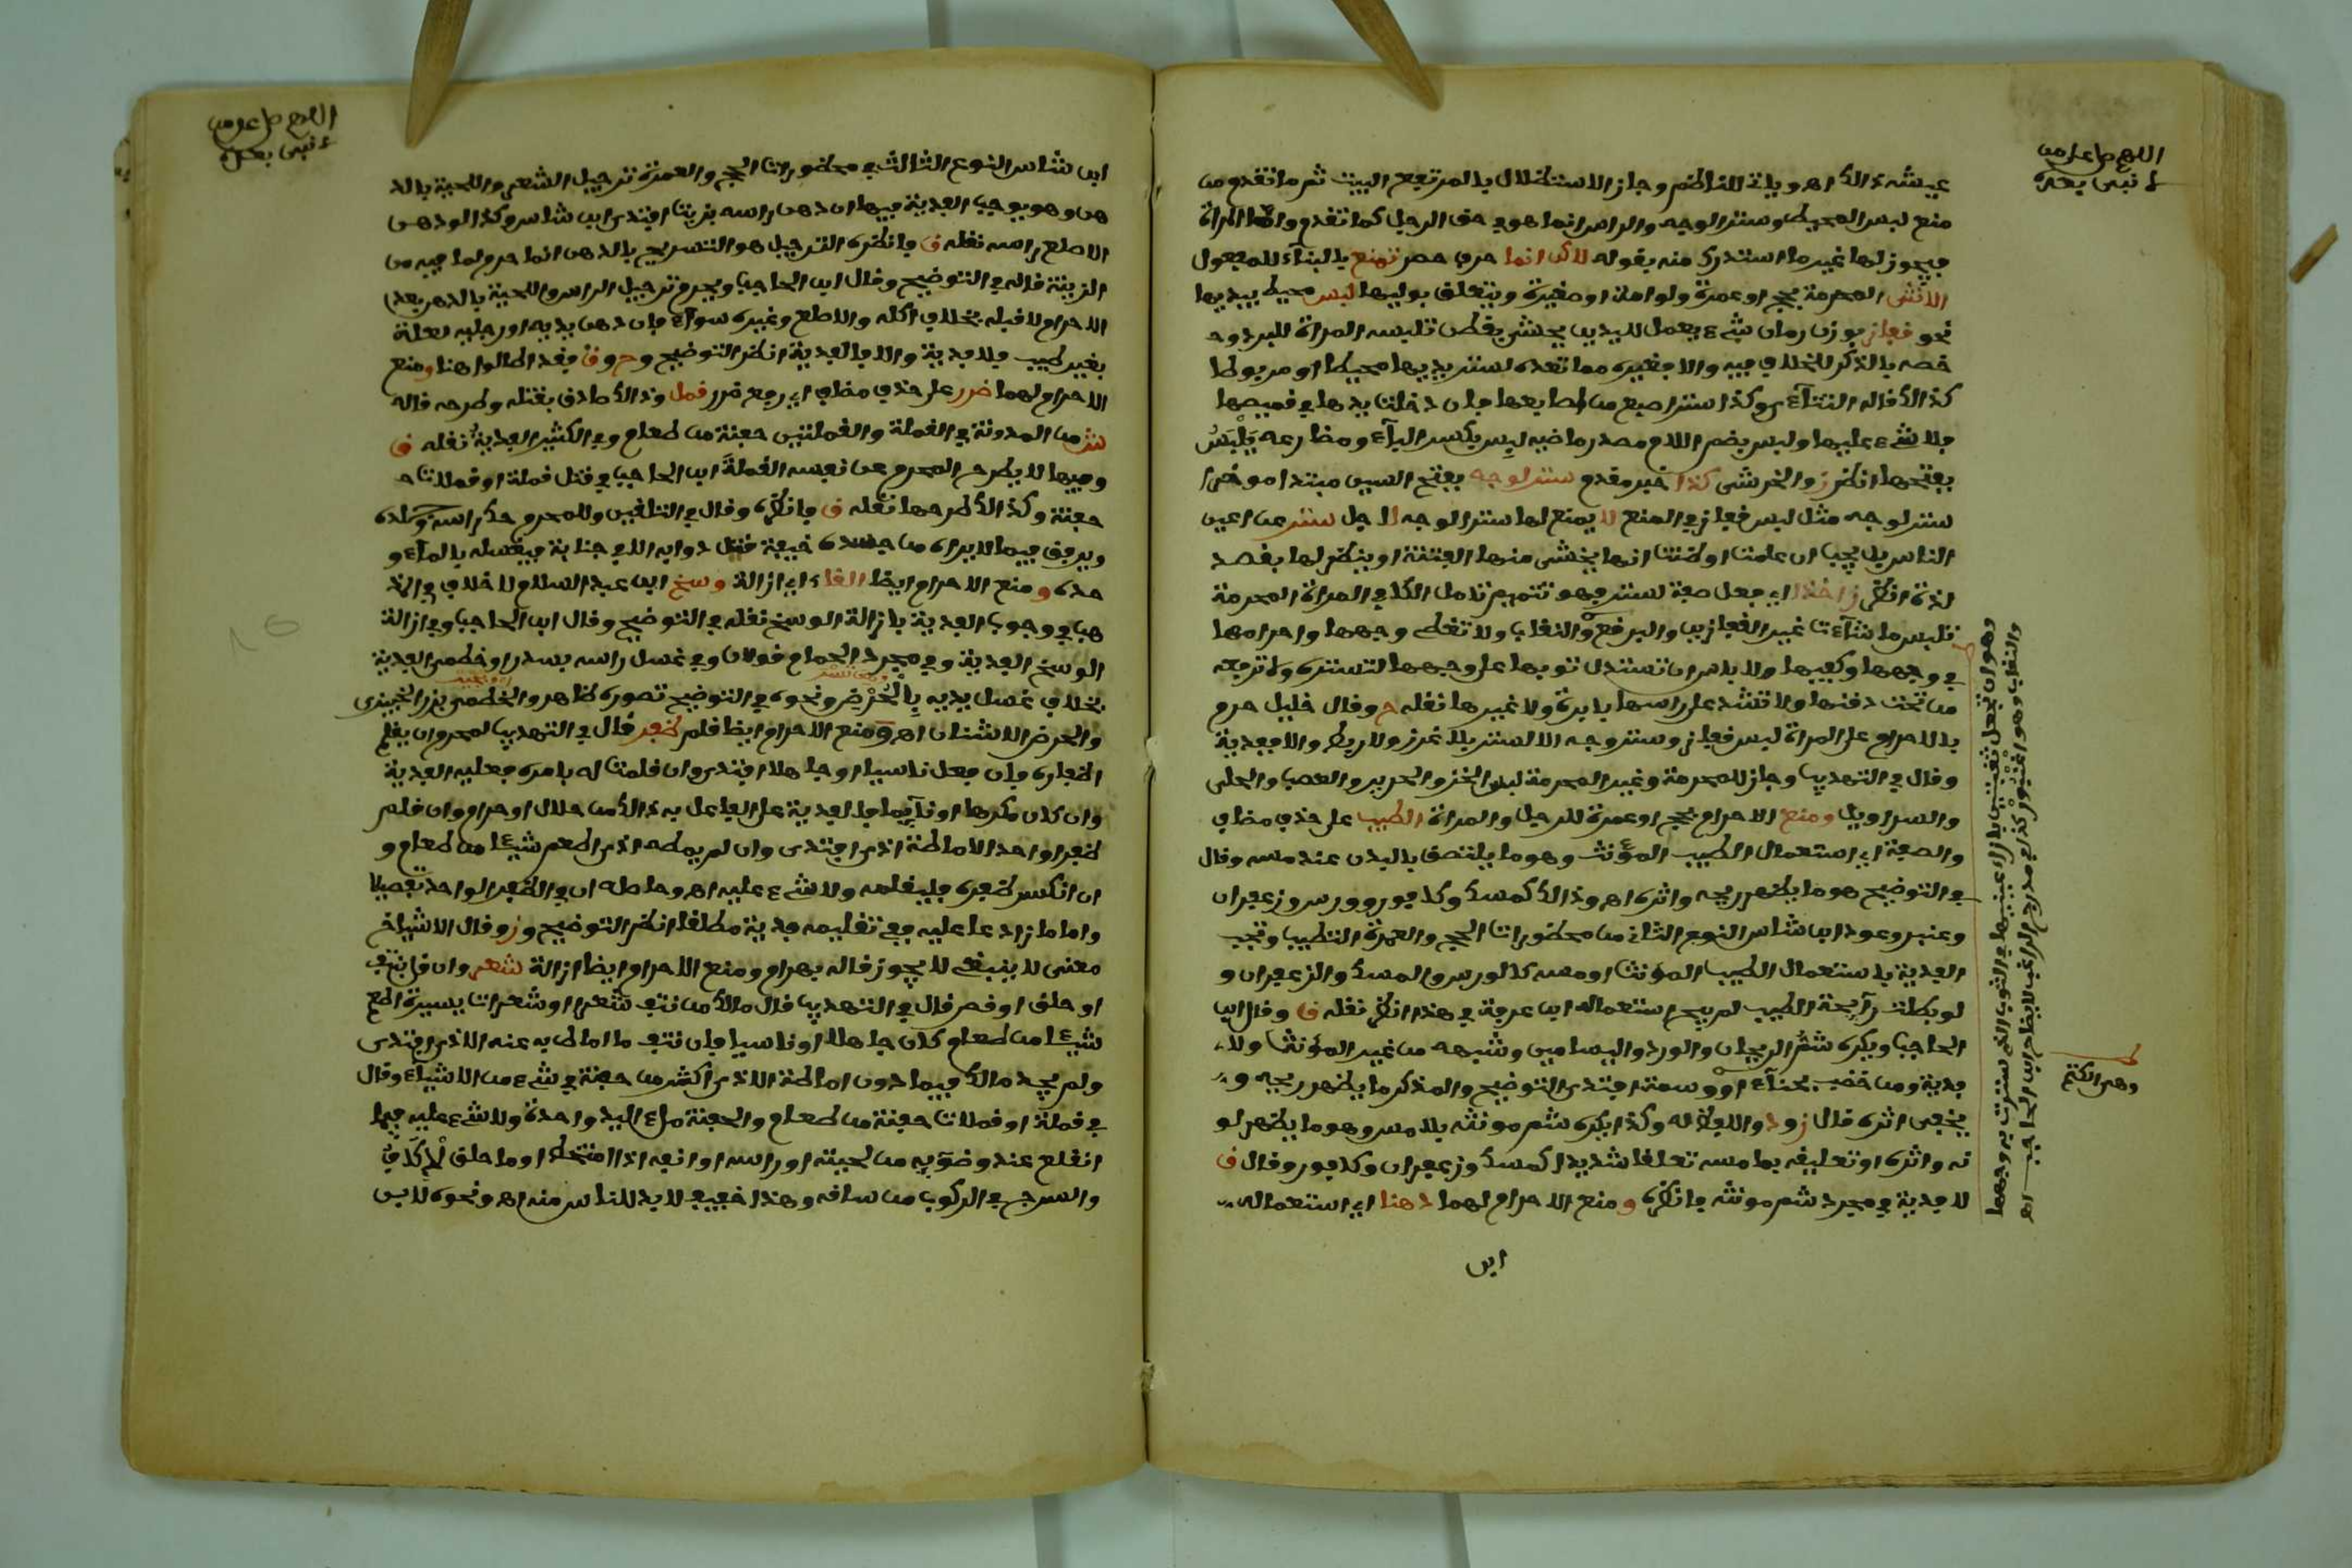 اللهم صل على من
لا نبي بعده
عيشه ذالك اهـ وياتي للناظم وجاز الاستظلال بالمرتفع البيت ثم ما تقدم من
منع لبس المحيط وستر الوجه والراس انما هو في حق الرجل كما تقدم واما المراة
فيجوز لها غير ما استدرك منه بقوله لاكن انما حرف حصر تمنع بالبناء للمفعول
الانثى المحرمة بحج او عمرة ولو امة او صغيرة ويتعلق بوليها لبس محيط بيديها
نحو قفاز بوزن رمان شيء يعمل لليدين يحشى بقطن تلبسه المراة للبرد و
خصه بالذكر للخلاف فيه والا فغيره مما تعده لستر يديها محيطا او مربوطا
كذالك قاله التتاءي وكذا ستر اصبع من اصابعها فان دخلت يدها في قميصها
فلا شيء عليها ولبس بضم اللام مصدر ماضيه لبس بكسر الباء ومضارعه يلبس
بفتحها انظر ز والخرشي كذا خبر مقدم ستر لوجه بفتح السين مبتدا موخر
ستر لوجه مثل لبس قفاز في المنع لا يمنع لها ستر الوجه لاجل ستر عن اعين
الناس بل يجب ان علمت او ظنت انها يخشى منها الفتنة او ينظر لها بقصد
لذة انظر ز اخذا اي جعل صفة لستر فهو تتميم تامل الكافي المراة المحرمة
تلبس ما شاءت غير القفازين والبرقع والنقاب ولا تغطي وجهها واحرامها
في وجهها وكفيها ولا باس ان تسدل ثوبها على وجهها لتستره ولا ترفعه
من تحت ذقنها ولا تشده على راسها بابرة ولا غيرها نقله ح وقال خليل حرم
بالاحرام على المراة لبس قفاز وستر وجه الا لستر بلا غرز ولا ربط والا ففدية
وقال في التهذيب وجاز للمحرمة وغير المحرمة لبس الخز والحرير والعصب والحلي
والسراويل ومنع الاحرام بحج او عمرة للرجل والمراة الطيب على حذف مضاف
والصفة اي استعمال الطيب المؤنث وهو ما يلتصق بالبدن عند مسه وقال
في التوضيح هو ما يظهر ريحه واثره اهـ وذالك كمسك وكافور وورس وزعفران
وعنبر وعود ابن شاس النوع الثاني من محظورات الحج والعمرة التطيب وتجب
الفدية باستعمال الطيب المؤنث او مسه كالورس والمسك والزعفران و
لو بطلت رائحة الطيب لم يبح استعماله ابن عرفة في هذا انظر نقله ق وقال ابن
الحاجب ويكره شم الريحان والورد والياسمين وشبهه من غير المؤنث ولا
فدية ومن خضب بحناء او وسمة افتدى التوضيح والمذكر ما يظهر ريحه و
يخفى اثره قال ز و د واللفظ له وكذا يكره شم مونثه بلا مس وهو ما يظهر لو
نه واثره او تعليقه بما مسه تعلقا شديدا كمسك وزعفران وكافور وقال ق
لا فدية في مجرد شم مونثه فانظره ومنع الاحرام لهما دهنا اي استعماله
ابن
وهي الكتم
اللهم صل على من
لا نبي بعده
ابن شاس النوع الثالث في محظورات الحج والعمرة ترجيل الشعر واللحية بالد
هن وهو يوجب الفدية فيها ان دهن راسه بزيت افتدى ابن شاس وكذا لو دهن
الاصلع راسه نقله ق فانظره الترجيل هو التسريح بالدهن انما حرم لما فيه من
الزينة قاله في التوضيح وقال ابن الحاجب ويحرم ترجيل الراس واللحية بالدهن بعد
الاحرام لا قبله بخلاف اكله والاصلع وغيره سواء فان دهن يديه او رجليه لعلة
بغير طيب فلا فدية والا فالفدية انظر التوضيح و ح و ق فقد اطالوا هنا ومنع
الاحرام لهما ضرر على حذف مضاف اي رفع ضرر قمل وذالك صادق بقتله وطرحه قاله
ش من المدونة في القملة والقملتين حفنة من طعام وفي الكثير الفدية نقله ق
وفيها لا يطرح المحرم عن نفسه القملة ابن الحاجب في قتل قملة او قملات
حفنة وكذالك طرحها نقله ق فانظره وقال في التلقين وللمحرم حك راسه وجلده
ويرفق فيما لا يراه من جسده خيفة قتل دوابه الا في جنابة فيغسله بالماء و
حده ومنع الاحرام ايضا القاء اي ازالة وسخ ابن عبد السلام لا خلاف في المذ
هب في وجوب الفدية بازالة الوسخ نقله في التوضيح وقال ابن الحاجب وفي ازالة
الوسخ الفدية وفي مجرد الحمام قولان وفي غسل راسه بسدر او خطمي الفدية
بخلاف غسل يديه بالحرض ونحوه في التوضيح تصوره ظاهر والخطمي بزر الخبيزى
والحرض الاشنان اهـ ومنع الاحرام ايضا قلم ظفر قال في التهذيب لمحرم ان يقلم
اظفاره فان فعل ناسيا او جاهلا افتدى وان قلمت له بامره فعليه الفدية
وان كان مكرها او نائما فالفدية على الفاعل به ذالك من حلال او حرام وان قلم
ظفرا واحدا لاماطة اذى افتدى وان لم يمط عنه اذى اطعم شيئا من طعام و
ان انكسر ظفره فليقلمه ولا شيء عليه اهـ وحاصله ان في الظفر الواحد تفصيلا
واما ما زاد على عليه ففي تقليمه فدية مطلقا انظر التوضيح و ز وقال الاشياخ
معنى لا ينبغي لا يجوز قاله بهرام ومنع الاحرام ايضا ازالة شعر وان قل بنتف
او حلق او قص قال في التهذيب قال مالك من نتف شعرا او شعرات يسيرة اطعم
شيئا من طعام كان جاهلا او ناسيا فان نتف ما اماط به عنه الاذى افتدى
ولم يحد مالك فيما دون اماطة الاذى اكثر من حفنة في شيء من الاشياء وقال
في قملة او قملات حفنة من طعام والحفنة ملء اليد واحدة ولا شيء عليه فيما
انقلع عند وضوءه من لحيته او راسه او انفه اذا امتخط او ما حلق الاكاف
والسرج في الركوب من ساقه وهذا خفيف لا بد للناس منه اهـ ونحوه لابن